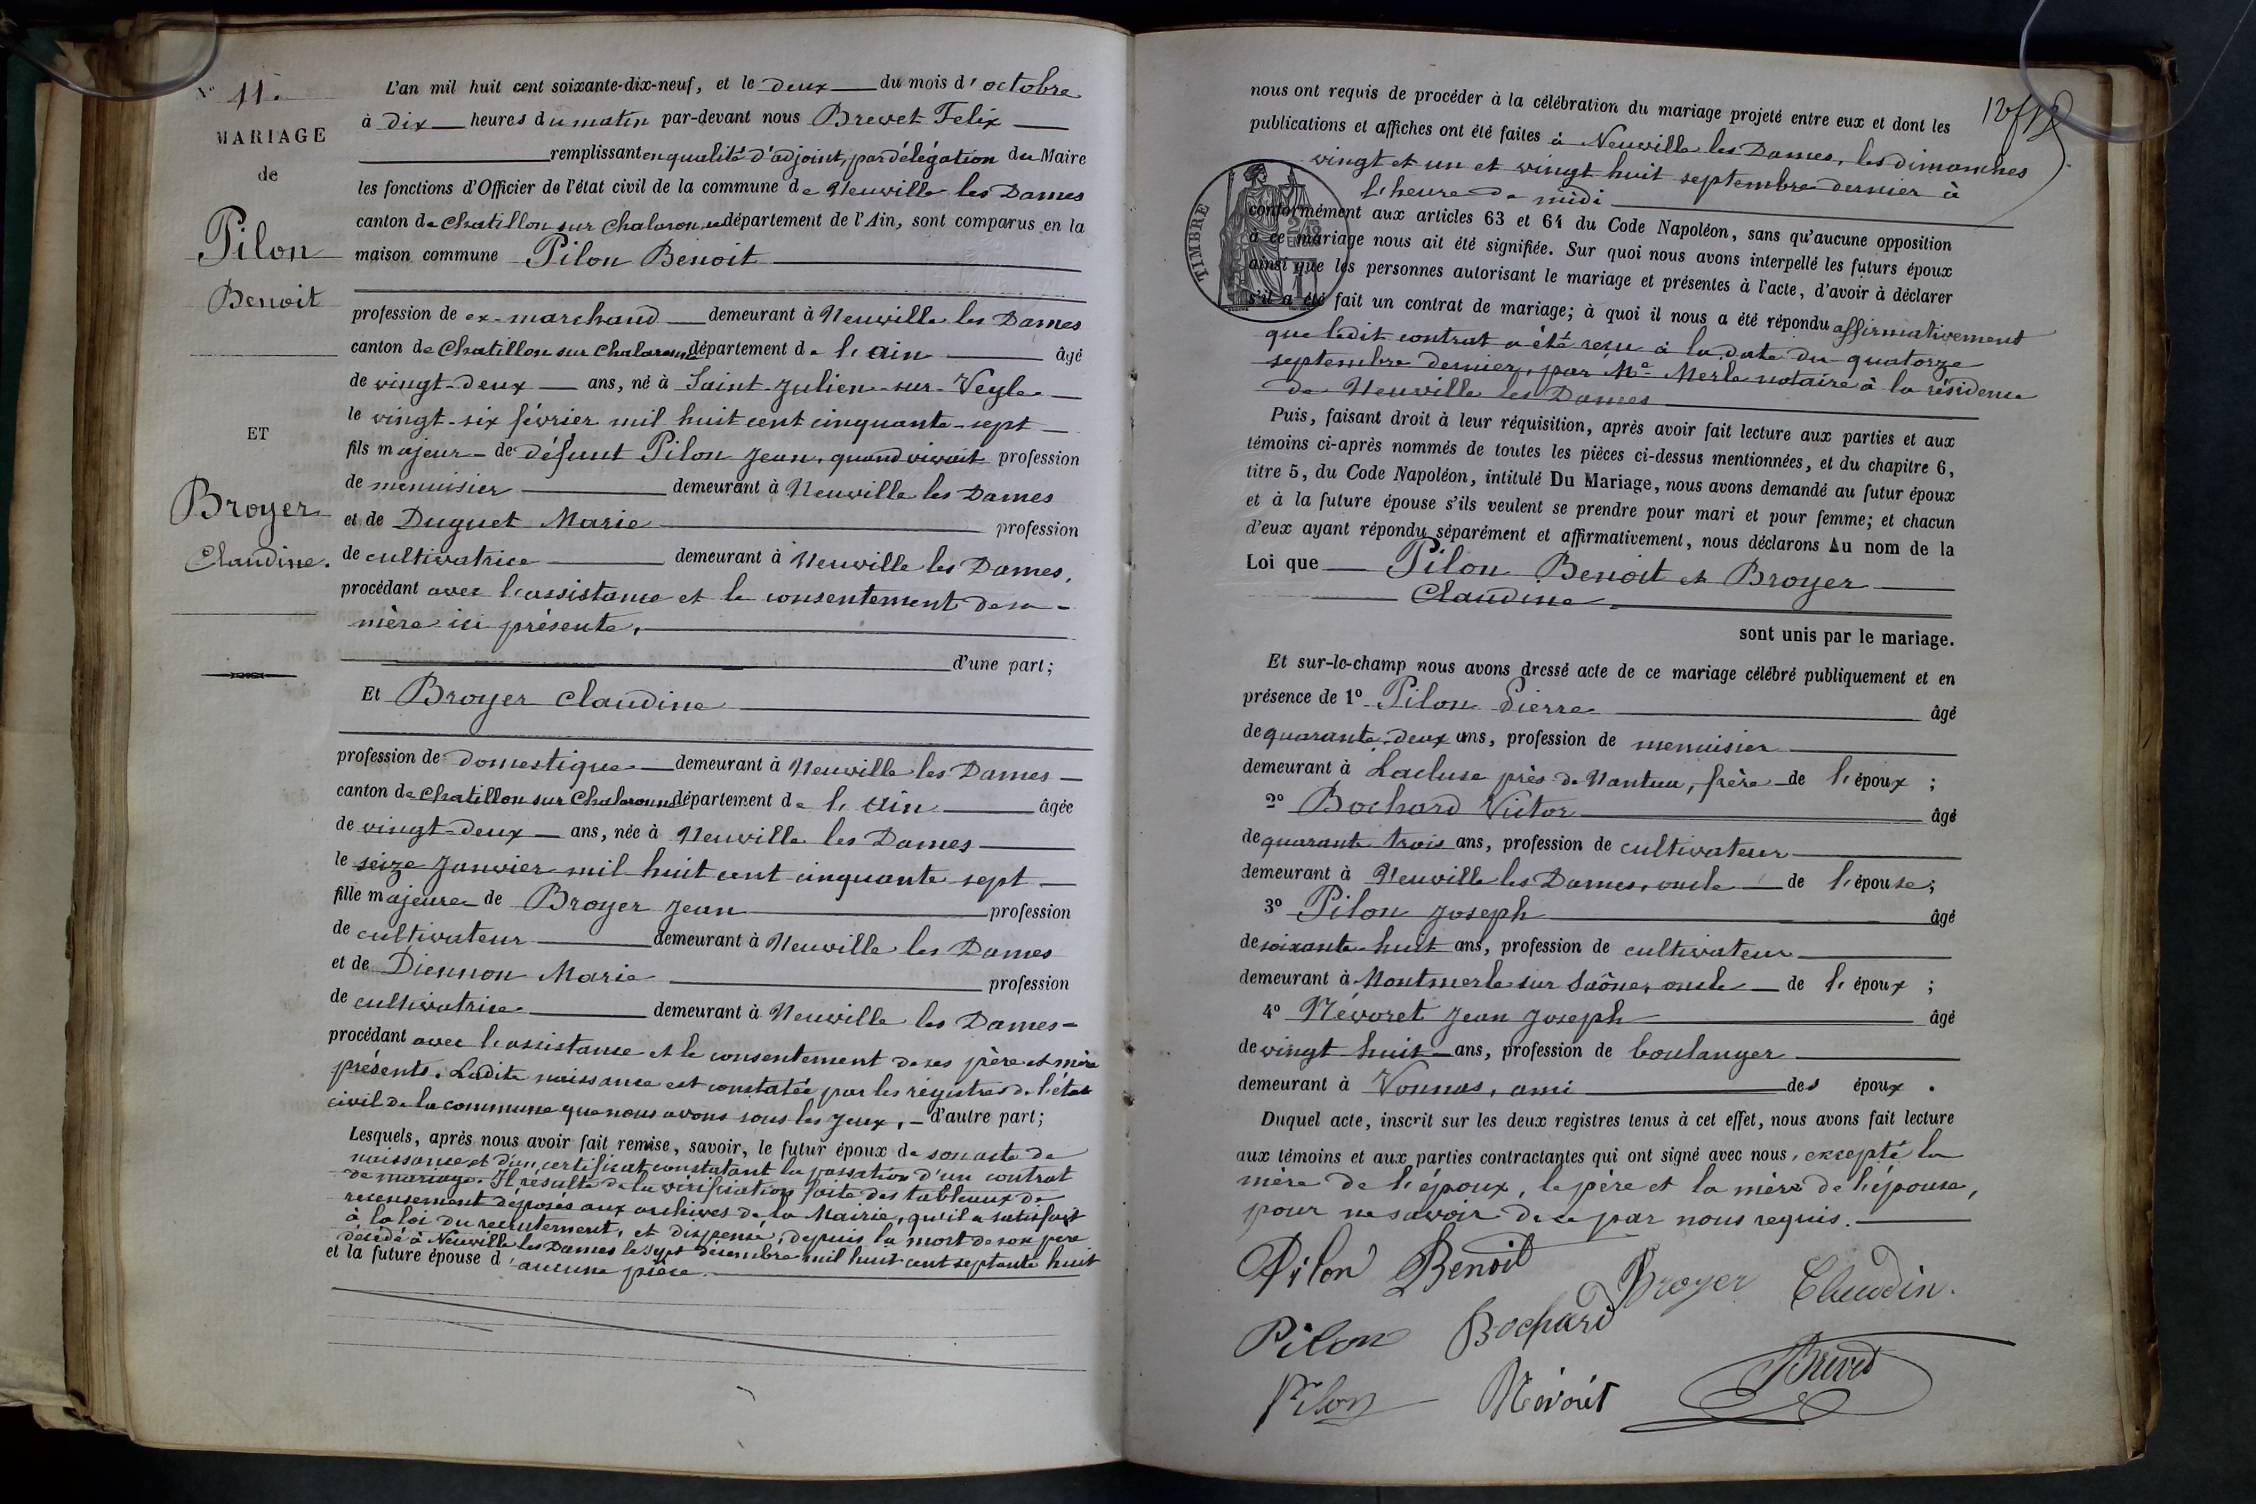 N° 11.
MARIAGE
de
Pilon
Benoit
ET
Broyer
Claudine.
L'an mil huit cent soixante-dix-neuf, et le deux du mois d'octobre
à dix heures du matin par-devant nous Brevet Felix
remplissant en qualité d'adjoint, par délégation du Maire
les fonctions d'Officier de l'état civil de la commune de Neuville les Dames
canton de Chatillon sur Chalaronne département de l'Ain, sont comparus en la
maison commune Pilon Benoit
profession de ex-marchand demeurant à Neuville les Dames
canton de Chatillon sur Chalaronne département de l'ain âgé
de vingt-deux ans, né à Saint-Julien-sur-Veyle
le vingt-six février mil huit cent cinquante-sept
fils majeur de défunt Pilon Jean, quand vivait profession
de menuisier demeurant à Neuville les Dames
et de Duguet Marie profession
de cultivatrice demeurant à Neuville les Dames,
procédant avec l'assistance et le consentement de sa
mère ici présente,
d'une part;
Et Broyer Claudine
profession de domestique demeurant à Neuville les Dames
canton de Chatillon sur Chalaronne département de l'ain âgée
de vingt-deux ans, née à Neuville les Dames
le seize Janvier mil huit cent cinquante sept
fille majeure de Broyer Jean profession
de cultivateur demeurant à Neuville les Dames
et de Diennon Marie profession
de cultivatrice demeurant à Neuville les Dames
procédant avec l'assistance et le consentement de ses père et mère
présents. Ladite naissance est constatée par les régistres de l'état
civil de la commune que nous avons sous les yeux, d'autre part;
Lesquels, après nous avoir fait remise, savoir, le futur époux de son acte de
naissance et d'un certificat constatant la passation d'un contrat
de mariage. Il résulte de la vérification faite des tableaux de
recensement déposés aux archives de la Mairie, qu'il a satisfait
à la loi du recrutement, et dispensé, depuis la mort de son père
décédé à Neuville les Dames le sept décembre mil huit cent septante huit
et la future épouse d'aucune pièce.
nous ont requis de procéder à la célébration du mariage projeté entre eux et dont les
publications et affiches ont été faites à Neuville les Dames, les dimanches
vingt et un et vingt huit septembre dernier à
l'heure de midi
TIMBRE
conformément aux articles 63 et 64 du Code Napoléon, sans qu'aucune opposition
à ce mariage nous ait été signifiée. Sur quoi nous avons interpellé les futurs époux
ainsi que les personnes autorisant le mariage et présentes à l'acte, d'avoir à déclarer
s'il a été fait un contrat de mariage; à quoi il nous a été répondu affirmativement
que ledit contrat a été reçu à la date du quatorze
septembre dernier, par Me Merle notaire à la résidence
de Neuville les Dames
Puis, faisant droit à leur réquisition, après avoir fait lecture aux parties et aux
témoins ci-après nommés de toutes les pièces ci-dessus mentionnées, et du chapitre 6,
titre 5, du Code Napoléon, intitulé Du Mariage, nous avons demandé au futur époux
et à la future épouse s'ils veulent se prendre pour mari et pour femme; et chacun
d'eux ayant répondu séparément et affirmativement, nous déclarons Au nom de la
Loi que Pilon Benoit et Broyer
Claudine
sont unis par le mariage.
Et sur-le-champ nous avons dressé acte de ce mariage célébré publiquement et en
présence de 1° Pilon Pierre âgé
de quarante-deux ans, profession de menuisier
demeurant à Lacluse près de Nantua, frère de l'époux;
2° Bochard Victor âgé
de quarante trois ans, profession de cultivateur
demeurant à Neuville les Dames, oncle de l'épouse;
3° Pilon Joseph âgé
de soixante-huit ans, profession de cultivateur
demeurant à Montmerle sur Saône, oncle de l'époux;
4° Névoret Jean Joseph âgé
de vingt-huit ans, profession de boulanger
demeurant à Vonnas, ami des époux.
Duquel acte, inscrit sur les deux registres tenus à cet effet, nous avons fait lecture
aux témoins et aux parties contractantes qui ont signé avec nous, excepté la
mère de l'époux, le père et la mère de l'épouse,
pour ne savoir de ce par nous requis.
Pilon Benoit
Broyer Claudin.
Pilon Bochard
Pilon Névoret Brevet